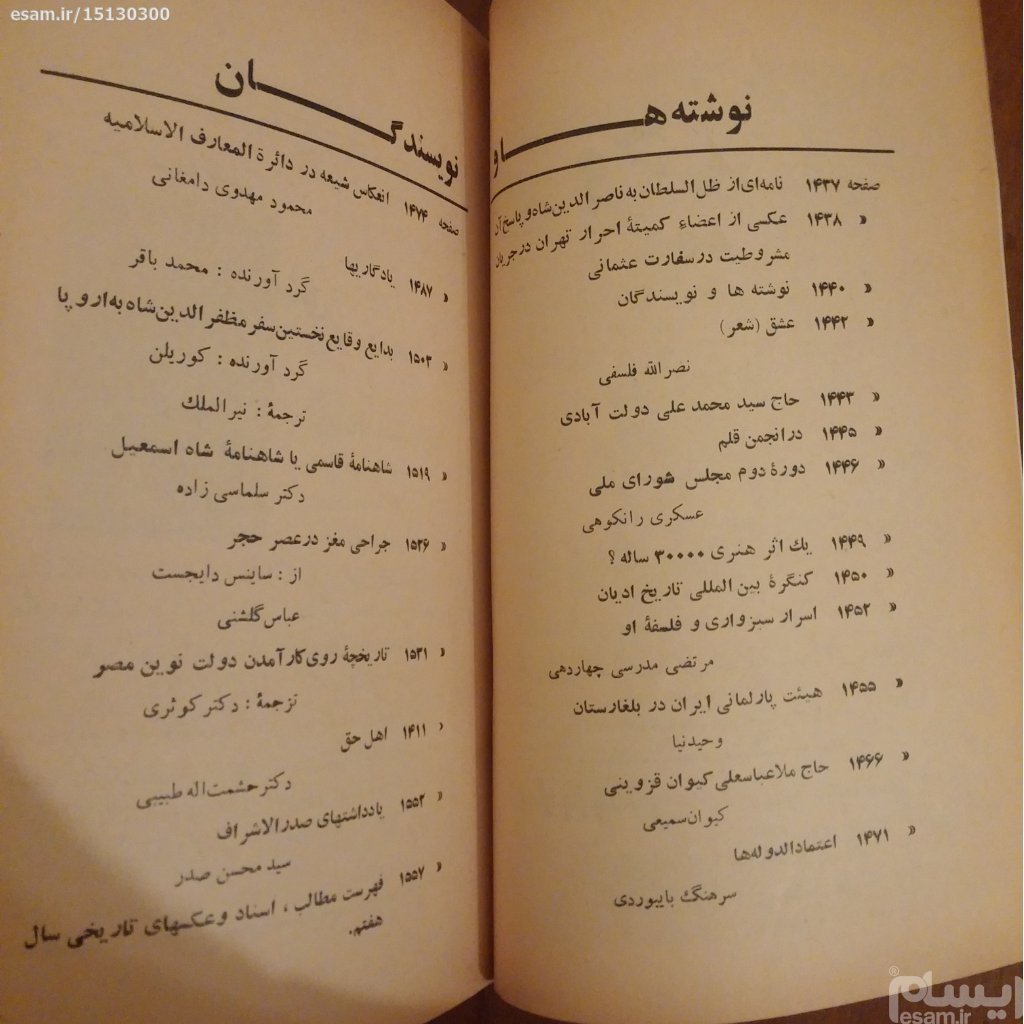 esam.ir/15130300
نوشته ها و نویسندگان
صفحه ۱۴۳۷ نامه‌ای از ظل السلطان به ناصر الدین شاه و پاسخ آن
« ۱۴۳۸ عکسی از اعضاء کمیتهٔ احرار تهران در جریان
مشروطیت در سفارت عثمانی
« ۱۴۴۰ نوشته ها و نویسندگان
« ۱۴۴۲ عشق (شعر)
نصرالله فلسفی
« ۱۴۴۳ حاج سید محمد علی دولت آبادی
« ۱۴۴۵ در انجمن قلم
« ۱۴۴۶ دورهٔ دوم مجلس شورای ملی
عسکری رانکوهی
« ۱۴۴۹ یك اثر هنری ۳۰۰۰۰ ساله ؟
« ۱۴۵۰ کنگرهٔ بین المللی تاریخ ادیان
« ۱۴۵۲ اسرار سبزواری و فلسفهٔ او
مرتضی مدرسی چهاردهی
« ۱۴۵۵ هیئت پارلمانی ایران در بلغارستان
وحیدنیا
« ۱۴۶۶ حاج ملاعباسعلی کیوان قزوینی
کیوان سمیعی
« ۱۴۷۱ اعتمادالدوله‌ها
سرهنگ بایبوردی
صفحه ۱۴۷۴ انعکاس شیعه در دائرة المعارف الاسلامیه
محمود مهدوی دامغانی
« ۱۴۸۷ یادگاریها
گرد آورنده : محمد باقر
« ۱۵۰۳ بدایع وقایع نخستین سفر مظفر الدین شاه به اروپا
گرد آورنده : کوریلن
ترجمهٔ : نیر الملك
« ۱۵۱۹ شاهنامهٔ قاسمی یا شاهنامهٔ شاه اسمعیل
دکتر سلماسی زاده
« ۱۵۲۶ جراحی مغز در عصر حجر
از : ساینس دایجست
عباس گلشنی
« ۱۵۳۱ تاریخچهٔ روی کار آمدن دولت نوین مصر
ترجمهٔ : دکتر کوثری
« ۱۴۱۱ اهل حق
دکتر حشمت اله طبیبی
« ۱۵۵۲ یادداشتهای صدر الاشراف
سید محسن صدر
« ۱۵۵۷ فهرست مطالب ، اسناد و عکسهای تاریخی سال
هفتم.
ایسام
esam.ir